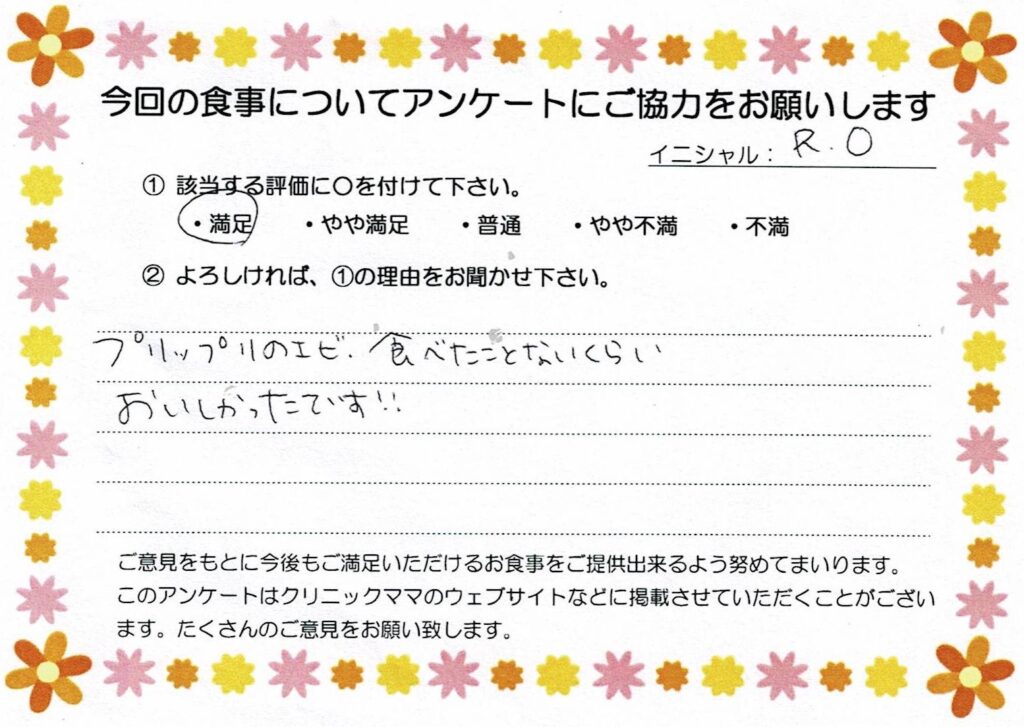 今回の食事についてアンケートにご協力をお願いします
イニシャル： R.O
① 該当する評価に〇を付けて下さい。
・満足 ・やや満足 ・普通 ・やや不満 ・不満
② よろしければ、①の理由をお聞かせ下さい。
プリップリのエビ、食べたことないくらい
おいしかったです!!
ご意見をもとに今後もご満足いただけるお食事をご提供出来るよう努めてまいります。
このアンケートはクリニックママのウェブサイトなどに掲載させていただくことがござい
ます。たくさんのご意見をお願い致します。